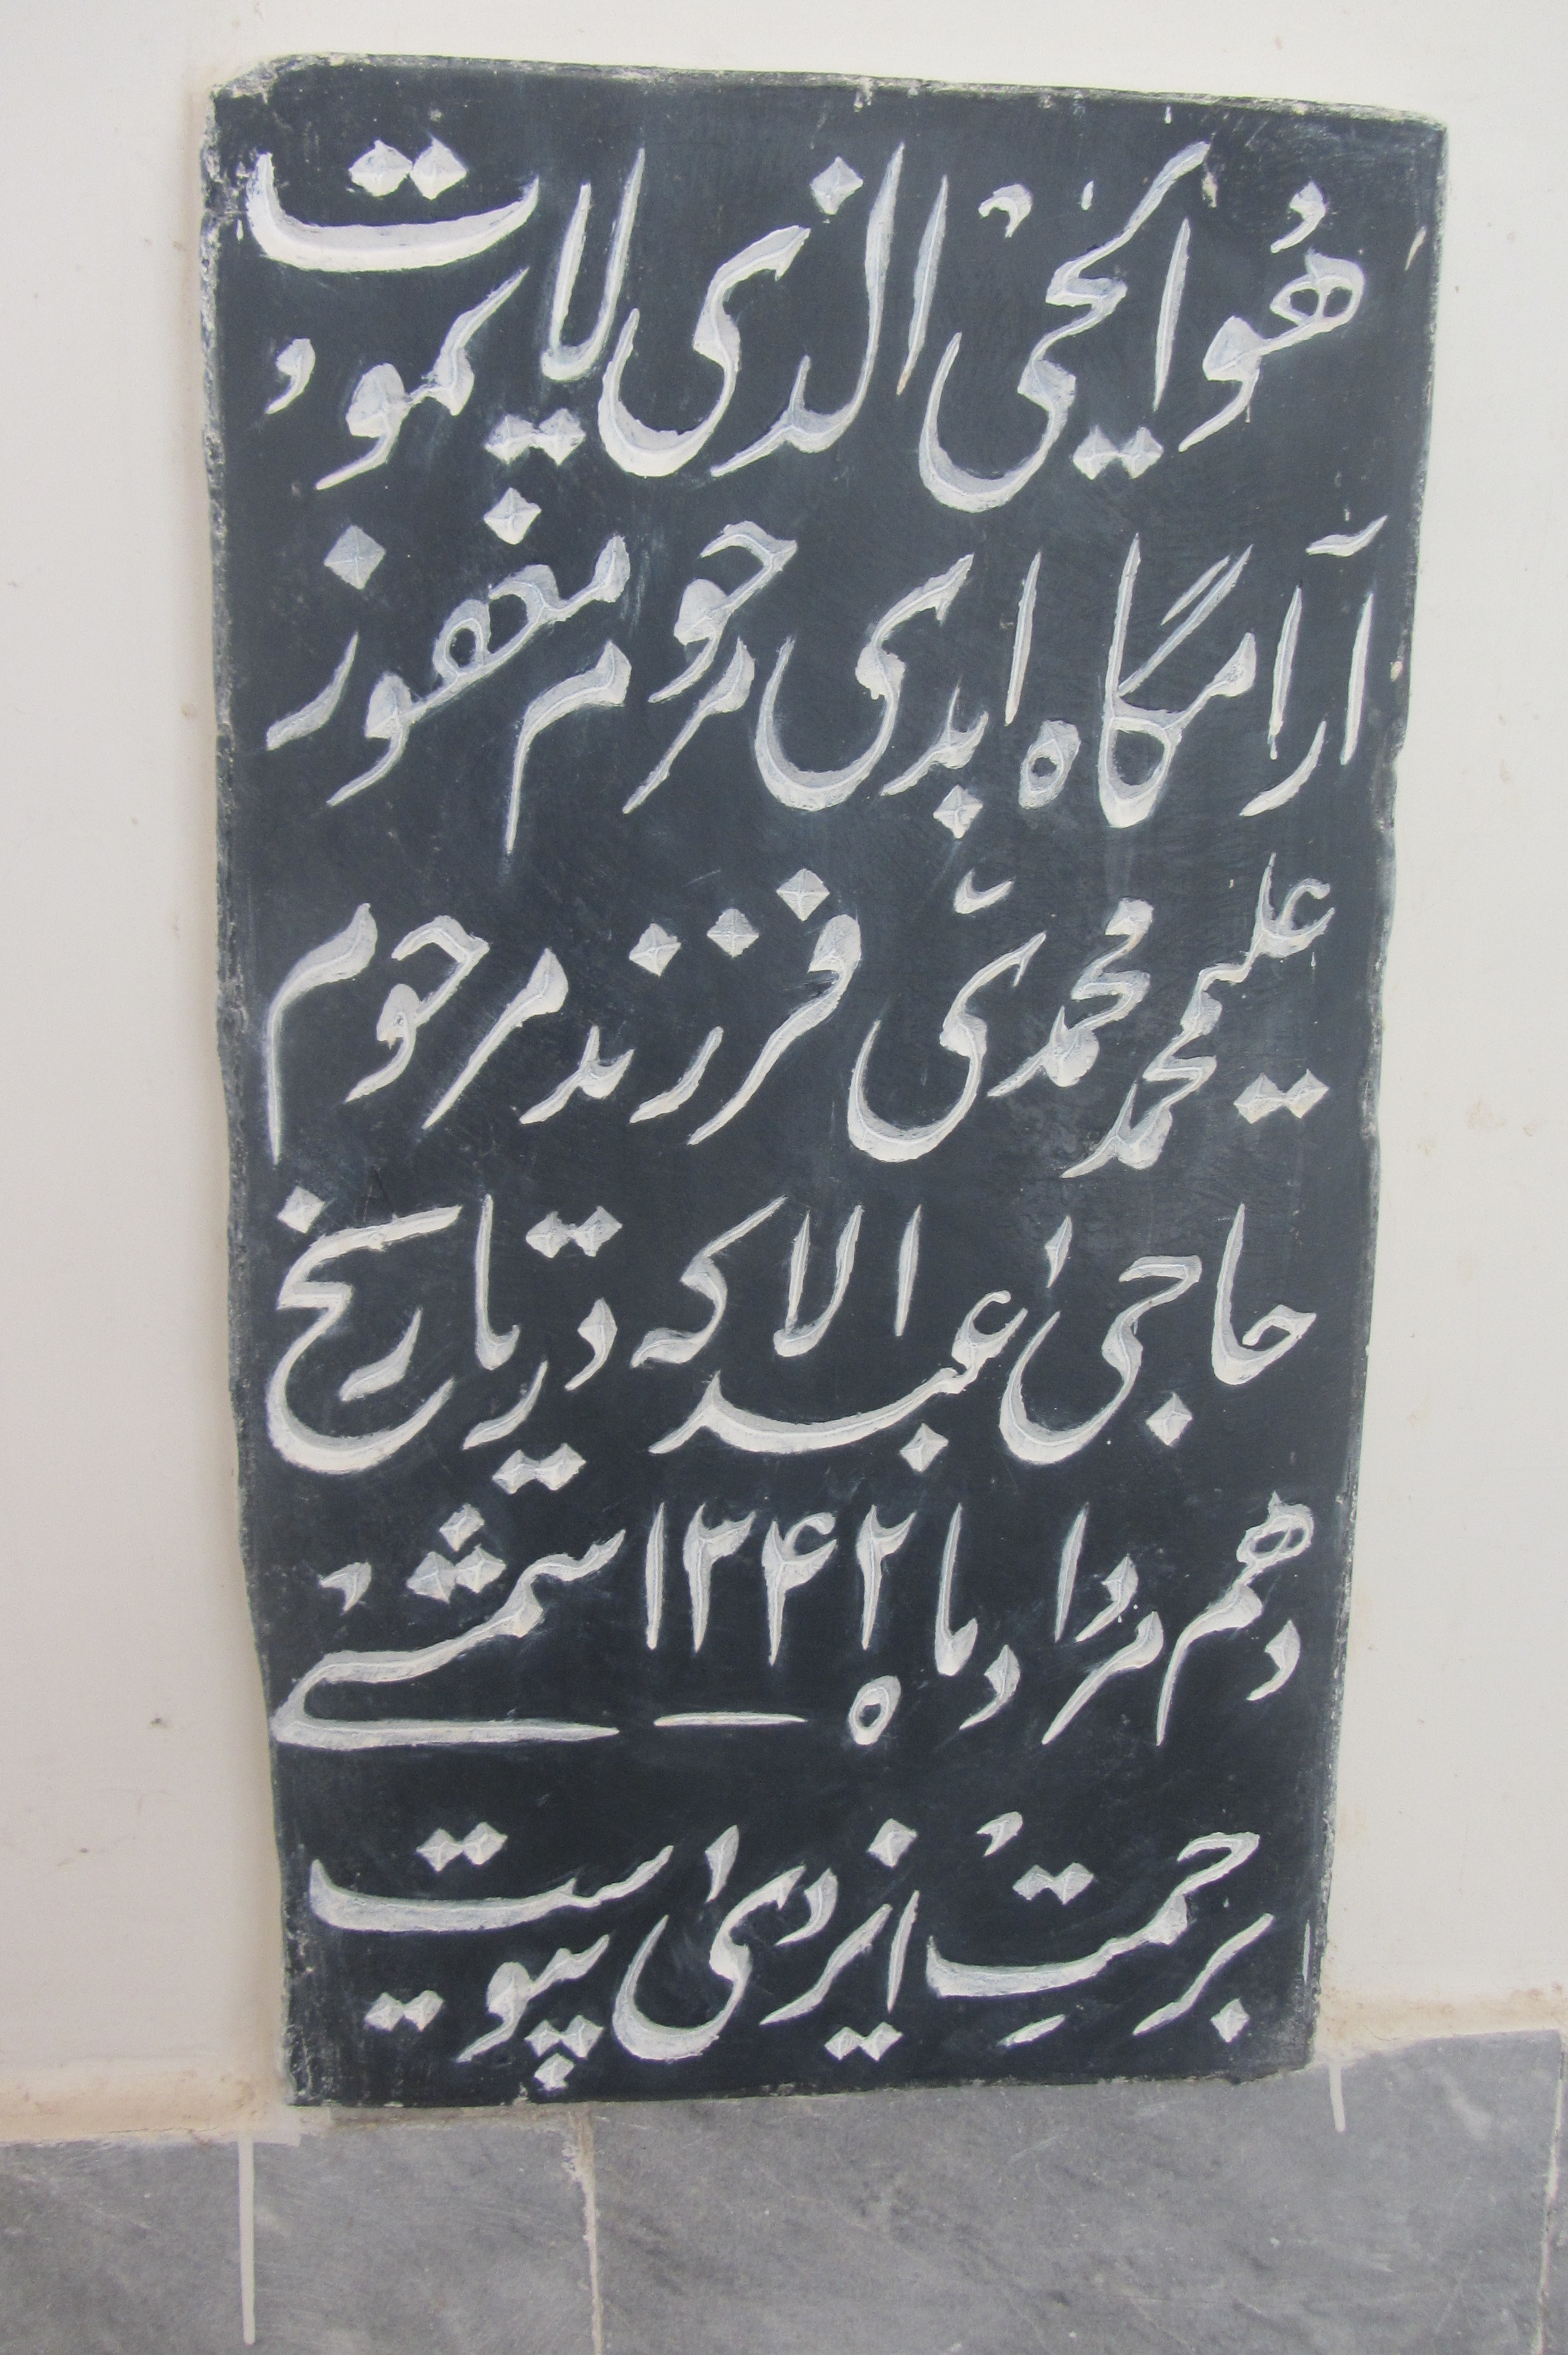 هو الحی الذی لایموت
آرامگاه ابدی مرحوم مغفور
علیمحمد محمدی فرزند مرحوم
حاجی عبدالا که در تاریخ
دهم مرداد ماه ۱۳۴۲ شمسی
برحمت ایزدی پیوست